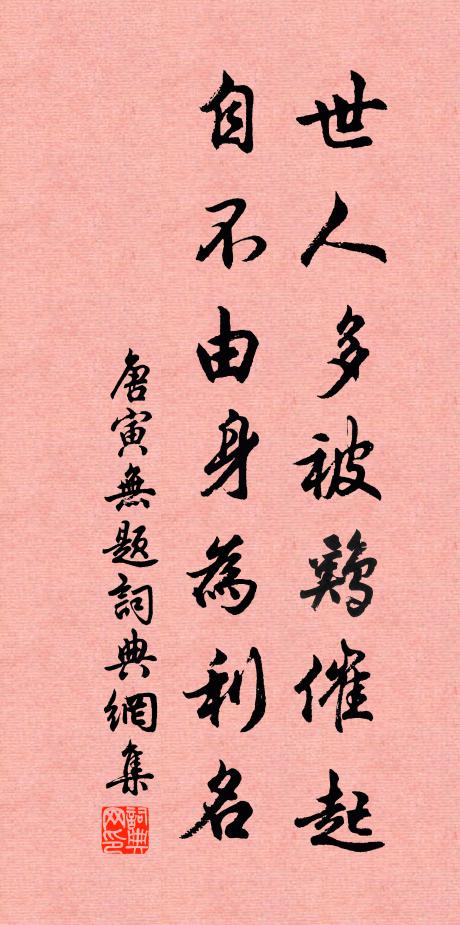 世人多被鷄催起
自不由身為利名
唐寅無題詞典網集
詞典网印